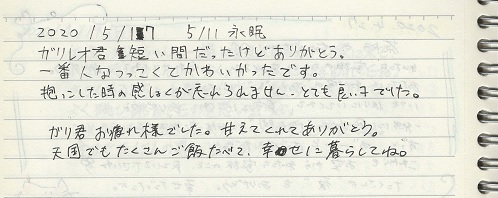 2020/5/17 5/11 永眠
ガリレオ君 短い間だったけどありがとう。
一番人なつっこくてかわいかったです。
抱っこした時の感しょくが忘れられません。とても良い子でした。
ガリ君 お疲れ様でした。甘えてくれてありがとう。
天国でもたくさんご飯たべて、幸せに暮らしてね。